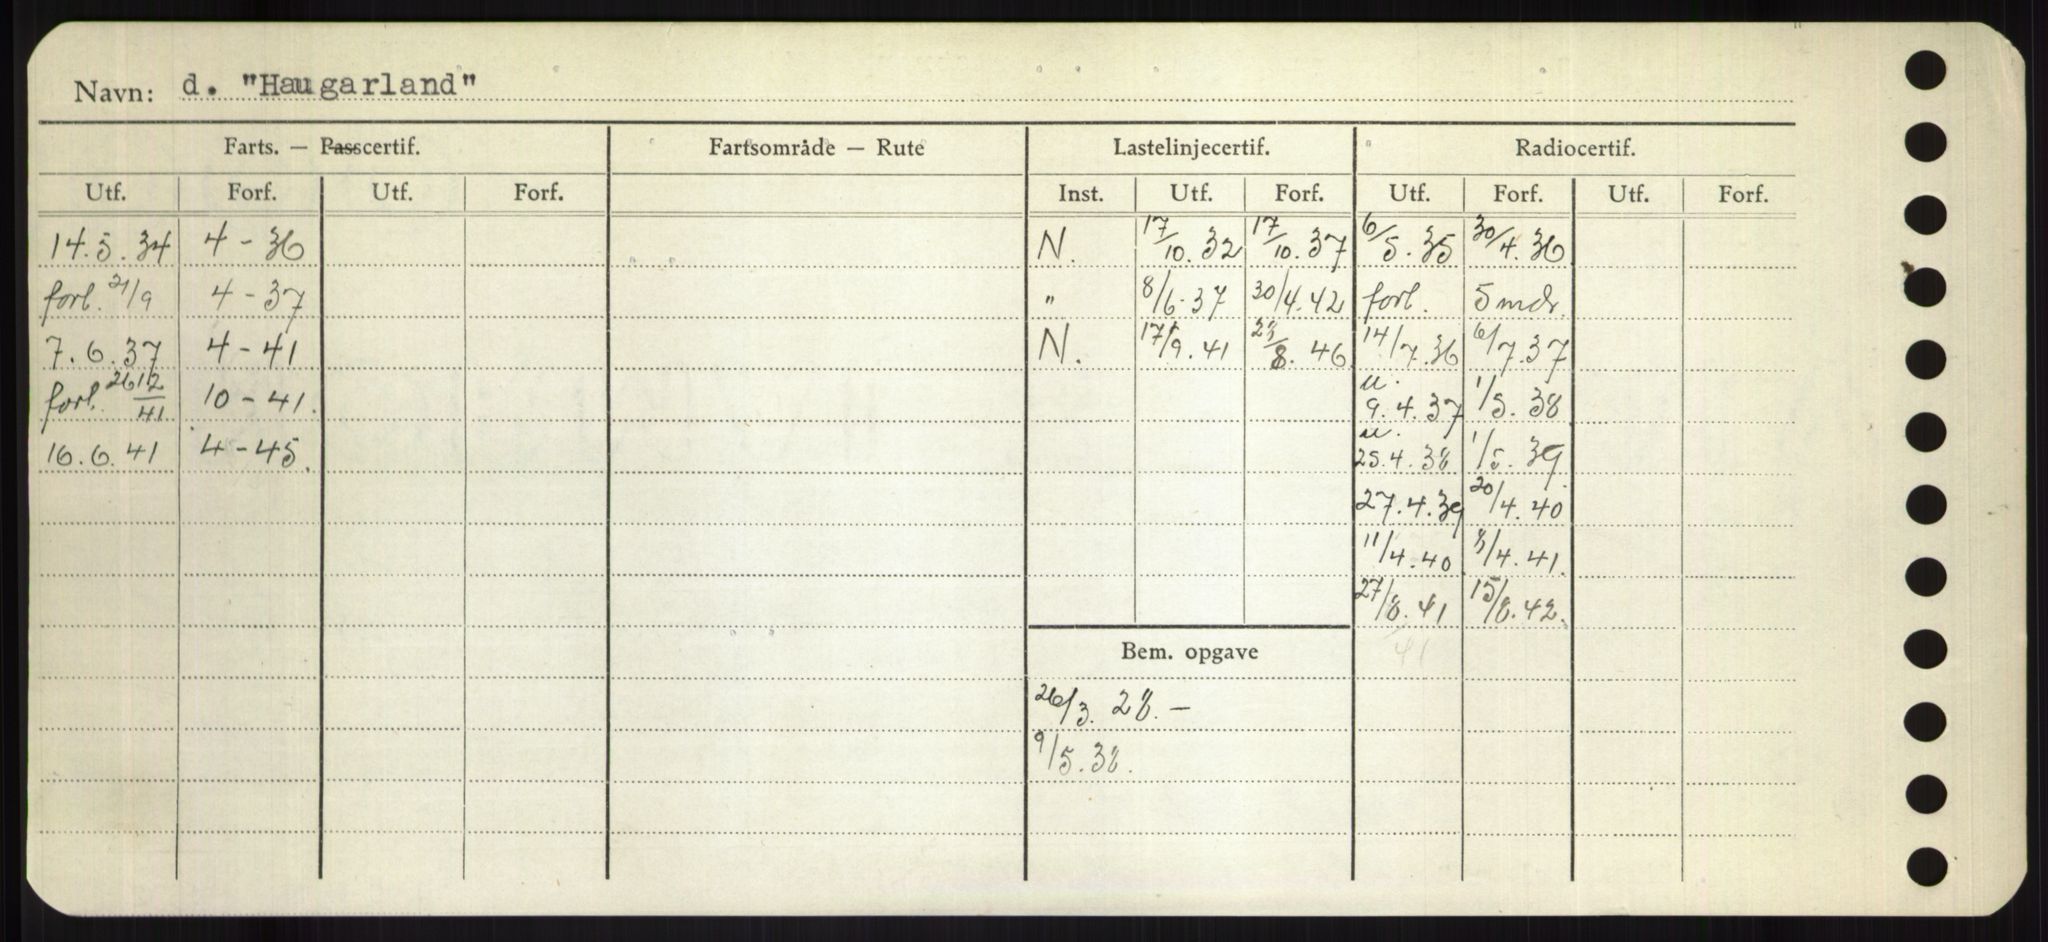 Navn: d. "Haugarland"
Farts. — Passcertif. Fartsområde — Rute Lastelinjecertif. Radiocertif.
Utf. Forf. Utf. Forf. Inst. Utf. Forf. Utf. Forf. Utf. Forf.
14.5.34 4-36 N. 17/10.32 17/10.37 6/5.35 30/4.36
forl. 21/9 4-37 " 8/6.37 30/4.42 forl. 5 mdr.
7.6.37 4-41 N. 17/9.41 28/8.46 14/7.36 6/7.37
forl. 26/2 41 10-41. u. 9.4.37 1/5.38
16.6.41 4-45. u. 25.4.38 1/5.39
27.4.39 20/4.40
11/4.40 8/4.41.
27/8.41 15/8.42.
Bem. opgave 41
26/3.28.—
9/5.38.